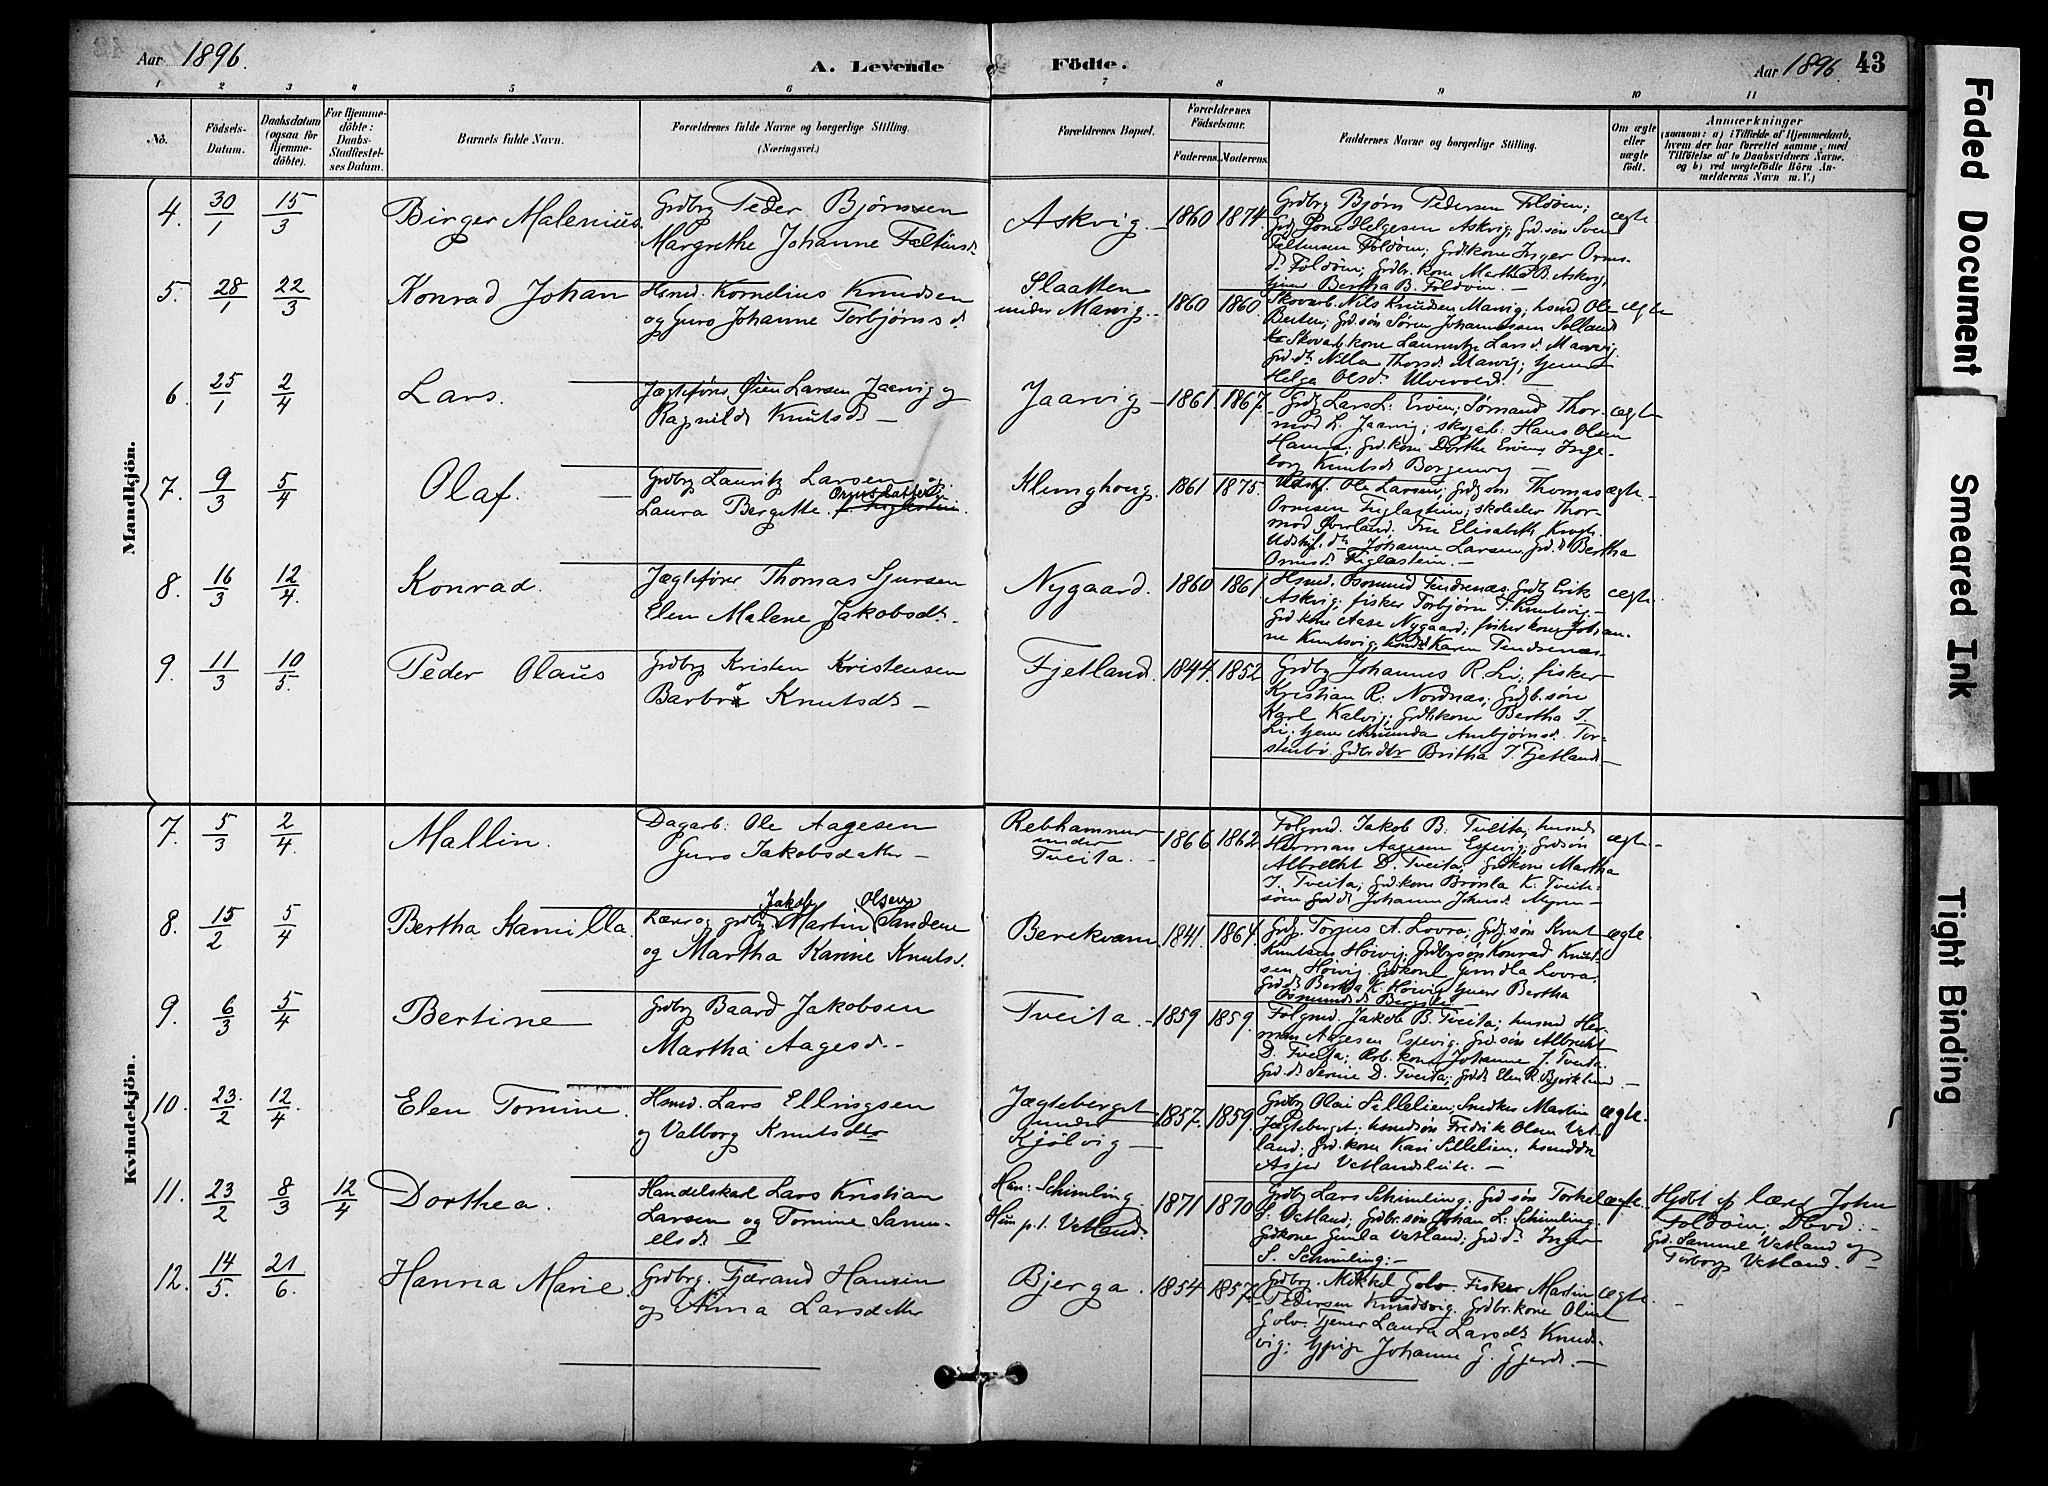 Aar 1896.
A. Levende Födte.
Aar 1896. 43
1 2 3 4 5 6 7 8 9 10 11
No.
Födsels-
Datum.
Daabsdatum
(ogsaa for
Hjemme-
döbte).
For Hjemme-
döbte:
Daabs-
Stadfæstel-
ses Datum.
Barnets fulde Navn.
Forældrenes fulde Navne og borgerlige Stilling.
(Næringsvei.)
Forældrenes Bopæl.
Forældrenes
Födselsaar.
Faderens. Moderens.
Faddernes Navne og borgerlige Stilling.
Om ægte
eller
uægte
födt.
Anmærkninger
(saasom: a) i Tilfælde af Hjemmedaab,
hvem der har forrettet samme, med
Tilföielse af to Daabsvidners Navne.
og b) ved uægtefödte Börn An-
melderens Navn m. V.)
Mandkjön.
4. 30/1 15/3 Birger Malenius.
Grdbrg Peder Bjørnsen
Margrethe Johanne Faltinsd.
Askvig. 1860 1874.
Grdbrg Bjørn Pedersen Foldöen;
Helgesen Askvig, Grd.søn Sven
Faltinsen Foldöen; Grdkone Inger Orms-
d. Foldöen; Grdbr.kone Martha B. Askvig,
Bertha B. Foldöen. —
ægte
5. 28/1 22/3 Konrad Johan
Hsmd. Kornelius Knudsen
og Guro Johanne Torbjørnsd.
Slaatten
under Marvig. 1860 1860.
Skovarb. Nils Knudsen Marvig; husmd Ole
Grd.søn Søren Johannessen
Skovarb.kone Larsd. Marvig
Grd.dtr Thorsd. Marvig;
Helga Olsd.
ægte
6. 25/1 2/4 Lars.
Jægtefører Øien Larsen Jaarvig og
Ragnild Knutsdt —
Jaarvig — 1861. 1867.
Grdbrg Lars L. Ervön; Sømand Thor-
mod L. Jaarvig; skoarb: Hans Olsen
Hamra; Grd.kone Dorthe Inge-
borg Knutsdt
ægte
7. 9/3 5/4 Olaf.
Grdbrg Lauritz Larsen og
Laura Bergitte Ormsdatter
Klunghoug. 1861 1875.
Ole Larsen; Grdbrg søn Thomas
Ormsen Fuglastein; skolelær Thor-
mod Øverland. Fru Elisabeth
dtr Johanne Larsen, Grd.d. Bertha
Ormsd. Fuglastein. —
ægte —
8. 16/3 12/4. Konrad.
Jægtefører Thomas Sjursen
Elen Malene Jakobsdt.
Nygaard. 1860 1861.
Hsmd. Osmund Tendrenæs. Grdbrg Erik
Askvig; fisker Torbjørn T. Knutsvig.—
Grd.kone Aase Nygaard; fisker kone Johan-
ne Knutsvig, Karen Tendrenæs—
ægte.
9. 11/3 10/5. Peder Olaus
Grdbrg Kristen Kristensen
Barbro Knutsdt —
Fjetland. 1844. 1852
Grdbrg Johannes R. Li; fisker
Kristian R. Nordnæs; Grdb.søn
Karl Kalvig; Grdbkone Bertha I.
Li; Amunda Ambjørnsd. Tor-
stenbø. Grdbr.dtr Britha I. Fjetland —
Kvindekjön.
7. 5/3 2/4. Mallin.
Dagarb: Ole Aagesen
Guro Jakobsdatter —
Rebhammer
under
Tveita. — 1866 1862.
Folgmd. Jakob B. Tveita; husmd
Herman Aagesen Espevig; Grdsøn
Albrecht D. Tveita; Grdkone Martha
I. Tveita; Grd.kone Brønla K. Tveite-
Grdd Johanne Johnsd. —
ægte —
8. 15/2 5/4 Bertha Kamilla.
Lærer og grdbrg. Jakob Martin Olsen Sandene
og Martha Karine Knutsd.
Berekvam 1841. 1864.
Grdbrg. Torjus A. Lovra; Grdbrg søn Knut
Knutsen Høivig; Grdbrgsøn Konrad Knud-
sen Høivig. Grdkone Gundla Lovra,
Grd.dt Bertha K. Høivig Bertha
Osmundsdt
ægte.
9. 6/3 5/4 Bertine
Grdbrg Baard Jakobsen
Martha Aagesd. —
Tveita. — 1859 1859.
Folgmd. Jakob B. Tveita; husmd Her-
man Aagesen Espevig, Grd.søn Albrecht
D. Tveita; Arb.kone Johanne J. Tveita.
Grd.d. Serine D. Tveita; Grdd Elen R. —
10. 23/2 12/4 Elen Tomine.
Hsmd. Lars Ellingsen
og Valborg Knutsdtr
Jægteberget
under
Kjölvig — 1857. 1859.
Grdbrg Olai Sillelien; Snedker Martin
Jægteberget; husmdsøn Fredrik Olsen Vet-
land; Grd.kone Kari Sillelien; husmddtr
Vetlandslein. —
ægte.
11. 23/2 8/3 12/4 Dorthea.
Handelskarl Lars Kristian
Larsen og Tomine Samu-
elsdt —
Han: Schimling
Hun p.t. Vetland. 1871 1870
Grdbrg Lars Schimling. Grd søn Torkel
S. Vetland; Grdbr.søn Johan L. Schimling.
Grdkone Gunla Vetland; Grd.dtr Inger
S. Schimling. —
ægte.
Hjdbt af lærer John
Foldöen; Dbvd: —
Grd. Samuel Vetland og
Torborg Vetland. —
12. 14/5. 21/6. Hanna Marie.
Grdbrg. Tjærand Hansen
og Anna Larsdatter
Bjerga. 1854 1857.
Grdbrg. Mikkel Golv. Fisker Martin
Pedersen Knudsvig. Grdbr.kone Oline
Golv. Tjener Laura Larsdt Knuds-
vig; Johanne G. Gjerde. —
ægte.
Faded Document
Smeared Ink
Tight Binding